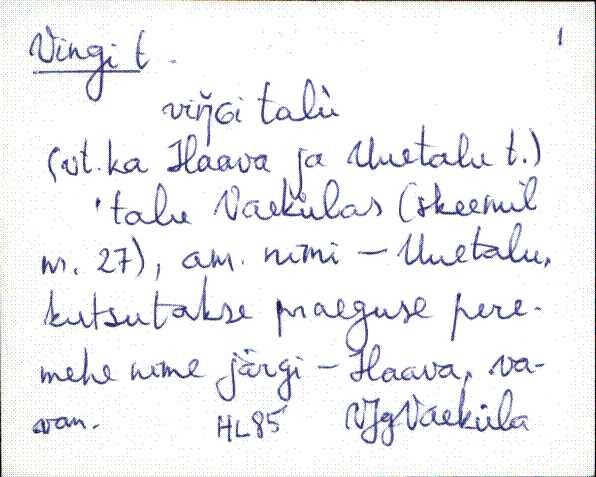 Vingi t. 1
viŋ̆Gi talù
(vt. ka Haava ja Uuetalu t.)
'talu Vaekülas (skeemil
nr. 27), am. nimi – Uuetalu,
kutsutakse praeguse pere-
mehe nime järgi – Haava, va-
van.
HL85 VJg Vaeküla